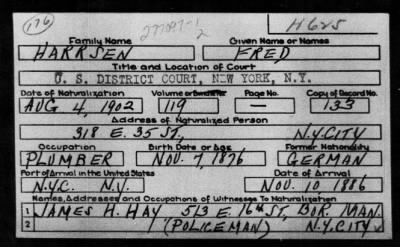 176 277097-1 H625
2
Family Name Given Name or Names
HARRSEN FRED
Title and Location of Court
U. S. DISTRICT COURT, NEW YORK, N.Y.
Date of Naturalization Volume or Page No. Copy of Record No.
AUG 4, 1902 119 — 133
Address of Naturalized Person
318 E. 35 ST., N.Y. CITY
Occupation Birth Date or Age Former Nationality
PLUMBER NOV. 7, 1876 GERMAN
Port of Arrival in the United States Date of Arrival
N.Y.C. N.Y. NOV. 10, 1886
Names, Addresses and Occupations of Witnesses To Naturalization
1 JAMES H. HAY 513 E 16th ST, BOR. MAN.
2 (POLICEMAN) N.Y. CITY